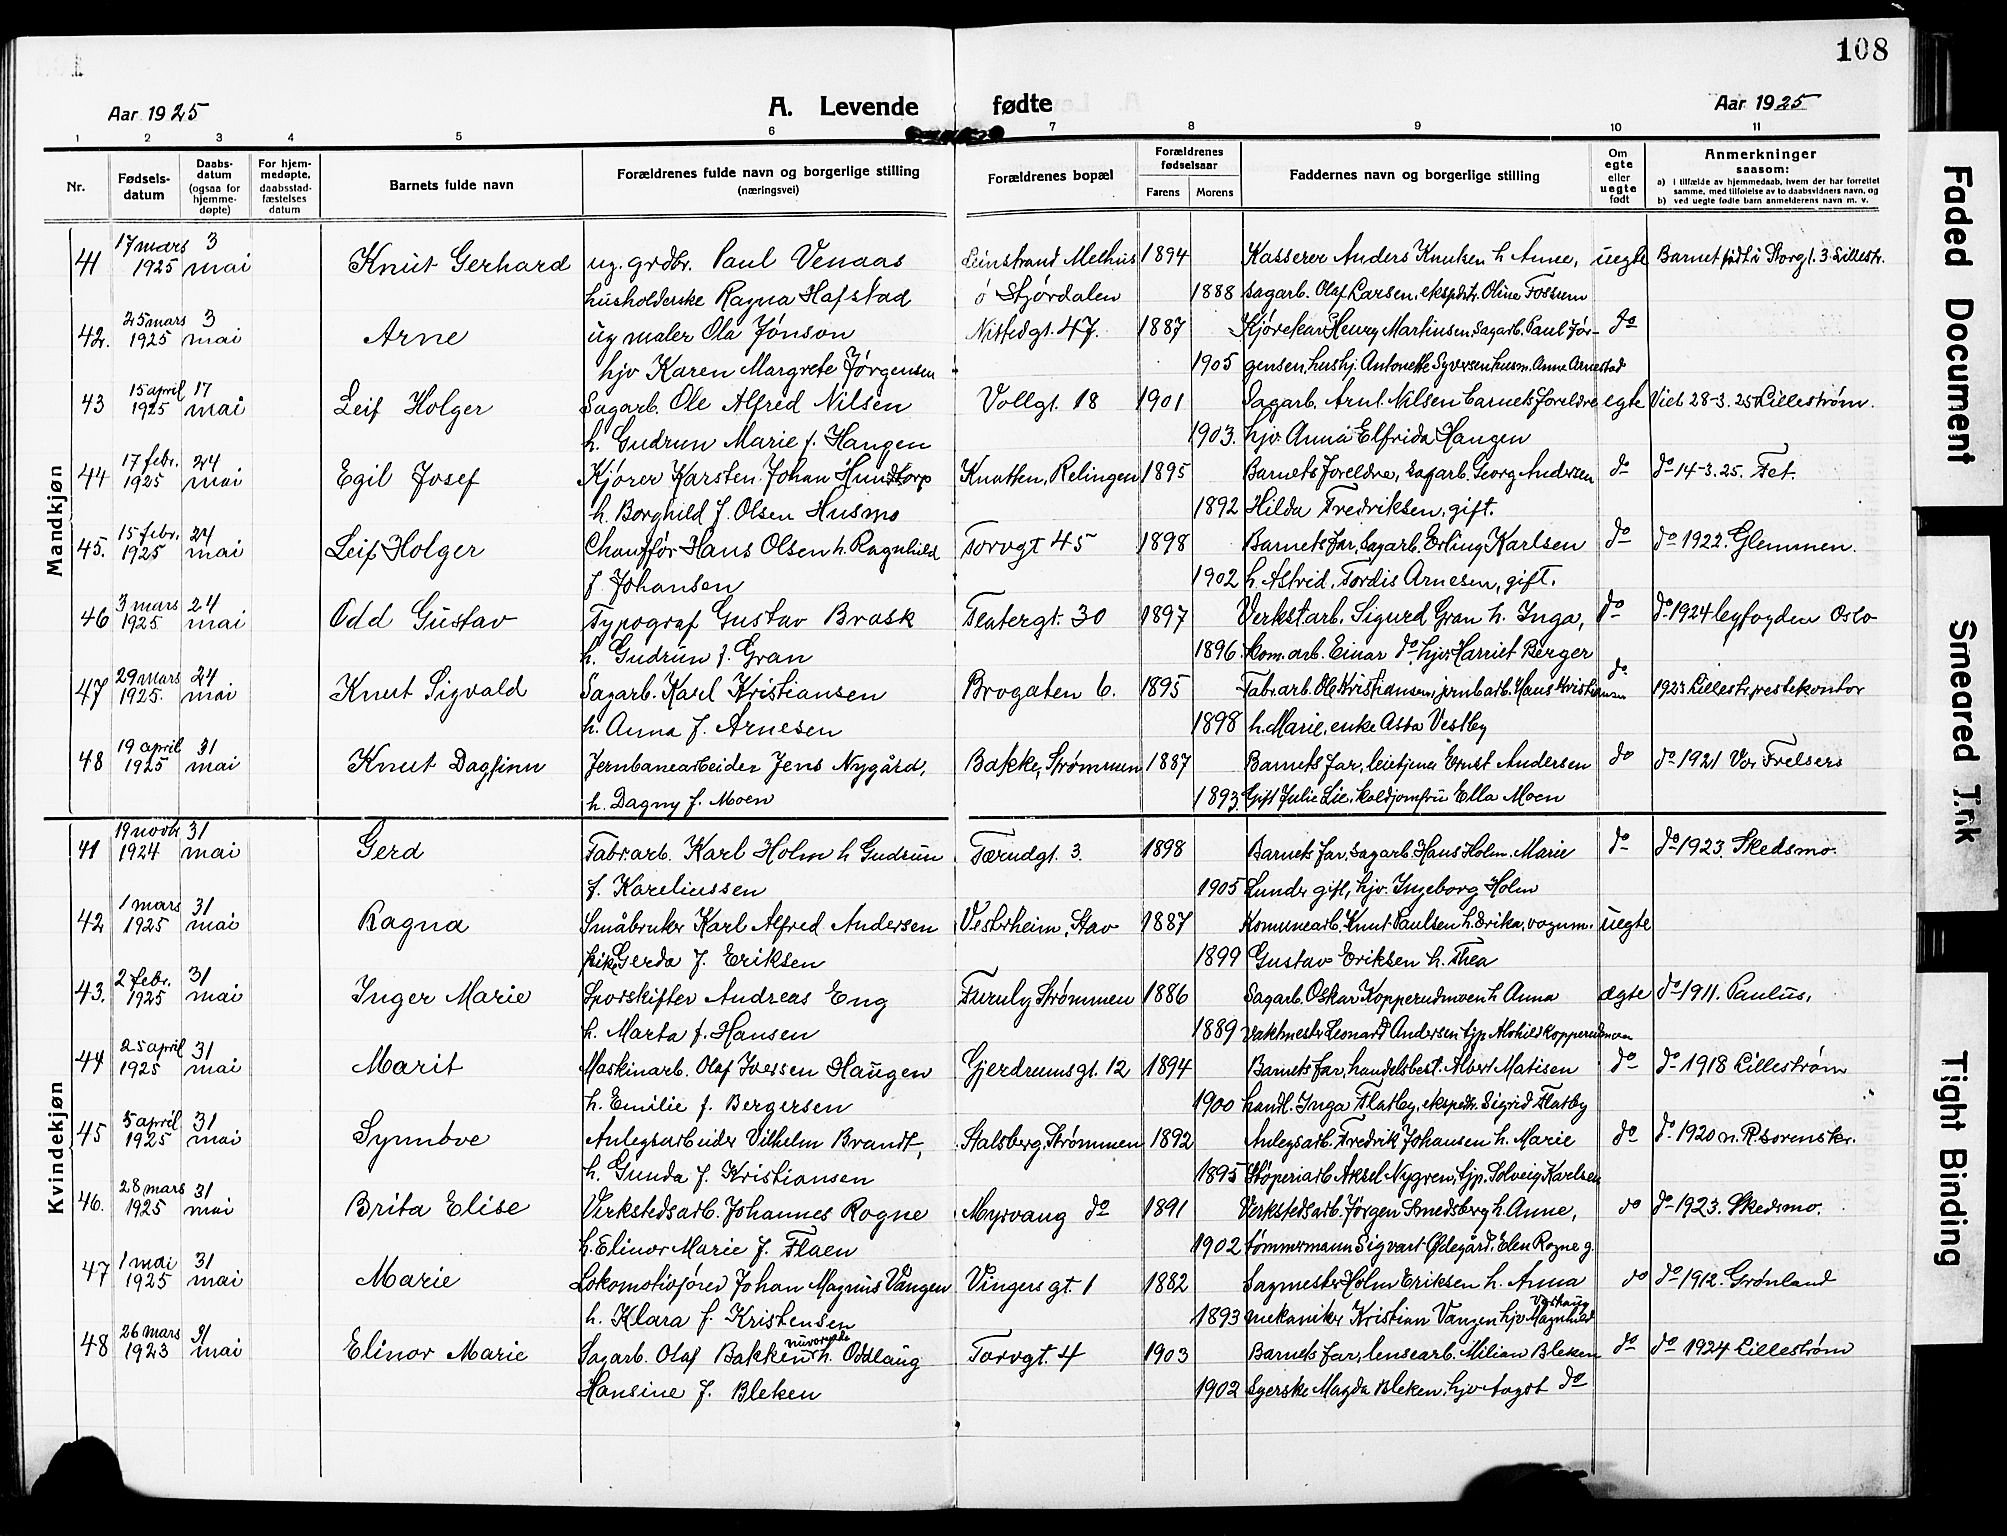 108
Aar 1925
A. Levende fødte
Aar 1925
1 2 3 4 5 6 7 8 9 10 11
Nr.
Fødsels-
datum
Daabs-
datum
(ogsaa for
hjemme-
døpte)
For hjem-
medøpte,
daabsstad-
fæstelses
datum
Barnets fulde navn
Forældrenes fulde navn og borgerlige stilling
(næringsvei)
Forældrenes bopæl
Forældrenes
fødselsaar
Farens Morens
Faddernes navn og borgerlige stilling
Om
egte
eller
uegte
født
Anmerkninger
saasom:
a) i tilfælde av hjemmedaab, hvem der har forrettet
samme, med tilføielse av to daabsvidners navn, og
b) ved uegte fødte barn anmelderens navn m. v.
Mandkjøn
17 mars 3
41 1925 mai Knut Gerhard ug. grdbr. Paul Venaas Leinstrand Melhus 1894 Kasserer Anders Knutsen h. Anne, uegte Barnet født i Storgt. 3. Lillestr.
husholderske Ragna Hafstad ö Stjördalen 1888 sagarb. Olaf Larsen, ekspdtr. Oline Fossum
25 mars 3
42. 1925 mai Arne ug maler Ola Jönson Nittedgt. 47. 1887 Kjörekar Henry Martinsen, Sagarb. Paul Jör- do
hjv Karen Margrete Jørgensen 1905 gensen, hushj. Antonette Syversen, husm. Anne Arnestad
15 april 17
43 1925 mai Leif Holger Sagarb. Ole Alfred Nilsen Vollgt. 18 1901 Sagarb. Arnt. Nilsen barnets foreldre egte Viet 28-3. 25 Lillestrøm.
h. Gudrun Marie f. Haugen 1903. hjv. Anna Elfrida Haugen
17 febr. 24
44 1925 mai Egil Josef Kjörer Karsten Johan Hundtorp Knatten, Relingen 1895 Barnets foreldre, sagarb. Georg Andrsen do do 14-3. 25. Fet.
h. Borghild f. Olsen Husmo 1892 Hilda Fredriksen, gift.
15 febr. 24
45. 1925 mai Leif Holger Chauffør Hans Olsen h. Ragnhild Torvgt 45 1898 Barnets far, Sagarb. Erling Karlsen do do 1922. Glemmen.
f. Johansen 1902 h. Astrid, Tordis Arnesen, gift.
3 mars 24
46 1925 mai Odd Gustav Typograf Gustav Brask Teatergt. 30 1897 Verkstarb. Sigurd Gran h. Inga, do do 1924 byfogden Oslo
h. Gudrun f. Gran 1896. kom. arb. Einar do, hjv. Harriet Berger
29 mars 24 do
47 1925. mai Knut Sigvald Sagarb. Karl Kristiansen Brogaten 6. 1895 Fabr. arb. Ole Kristiansen, jernb arb. Hans Kristiansen 1923 Lillestr. prestekontor
h. Anna f. Arnesen 1898 h. Marie, enke Asta Vestby
19 april 31
48 1925 mai Knut Dagfinn Jernbanearbeider Jens Nygård, Bakke, Strømmen 1887 Barnets far, leietjener Ernst Andersen do do 1921 Vor Frelsers
h. Dagny f. Moen 1893. Gift Julie Lie, koldjomfru Ella Moen
Kvindekjøn
19 novbr 31
41 1924 mai Gerd Fabr. arb. Karl Holm h Gudrun Færudgt. 3. 1898 Barnets far, sagarb. Hans Holm. Marie do do 1923. Skedsmo.
f. Kareliussen 1905 Lunder gift, hjv. Ingeborg Holm
1 mars 31
42 1925 mai Ragna Småbruker Karl Alfred Andersen Vestrheim, Stav 1887 Komunearb. Knut Paulsen h. Erika, vognm. uegte
pike Gerda f. Eriksen 1899 Gustav Eriksen h. Thea
2 febr. 31
43. 1925 mai Inger Marie Sporskifter Andreas Eng Furuly Strømmen 1886 Sagarb. Oskar Kopperudmoen h Anna ægte do 1911. Paulus,
h. Marta f. Hansen 1889 vaktmestr Leonard Andersen tjp. Alvhild Kopperudmoen
25 april 31
44 1925 mai Marit Maskinarb. Olaf Iversen Haugen Gjerdrumsgt. 12 1894 Barnets far, handelsbest. Albert Matisen do do 1918 Lillestrøm
h. Emilie f. Bergersen 1900 handl. Inga Flatby, ekspedtr. Sigrid Flatby
5 april 31
45 1925 mai Synnöve Anlegsarbeider Vilhelm Brandt, Stalsberg, Strømmen 1892 Anlegsarb. Fredrik Johansen h. Marie do do 1920 n. R. sorenskr.
h. Gunda f. Kristiansen 1895 Støperiarb Aksel Nygren, tjp. Solveig Karlsen
28 mars 31
46. 1925 mai Brita Elise Verkstedsarb. Johannes Rogne Myrvang do 1891 Verkstedsarb. Jørgen Smedsberg h. Anne, do do 1923. Skedsmo.
h. Elinor Marie f. Flaen 1902 tømmermann Sigvart Ødegård, Elen Rogne g.
1 mai 31
47 1925 mai Marie Lokomotivfører Johan Magnus Vangen Vingers gt. 1 1882 Sagmester Holm Eriksen h. Anna do do 1912. Grønland
h. Klara f. Kristensen 1893 mekaniker Kristian Vangen hjv. Magnhild
26 mars 31
48 1923 mai Elinor Marie Sagarb. Olaf Bakken nuværende h. Oddlaug Torvgt. 4 1903 Barnets far, lensearb. Milian Bleken do do 1924 Lillestrøm
Hansine f. Bleken 1902 Syerske Magda Bleken, hjv Aagot do
Faded Document
Smeared Ink
Tight Binding